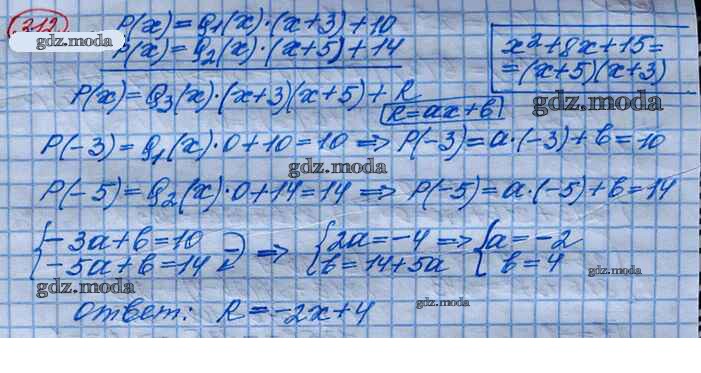 312
P(x) = Q₁(x)·(x+3)+10
gdz.moda
P(x) = Q₂(x)·(x+5)+14
x²+8x+15=
=(x+5)(x+3)
P(x) = Q₃(x)·(x+3)(x+5)+R
R=ax+b
gdz.moda
P(-3) = Q₁(x)·0+10=10 ⇒ P(-3)=a·(-3)+b=10
gdz.moda
P(-5) = Q₂(x)·0+14=14 ⇒ P(-5)=a·(-5)+b=14
{-3a+b=10 -) ⇒ {2a=-4 ⇒ {a=-2
-5a+b=14 b=14+5a b=4
gdz.moda
gdz.moda
gdz.moda
ответ: R=-2x+4